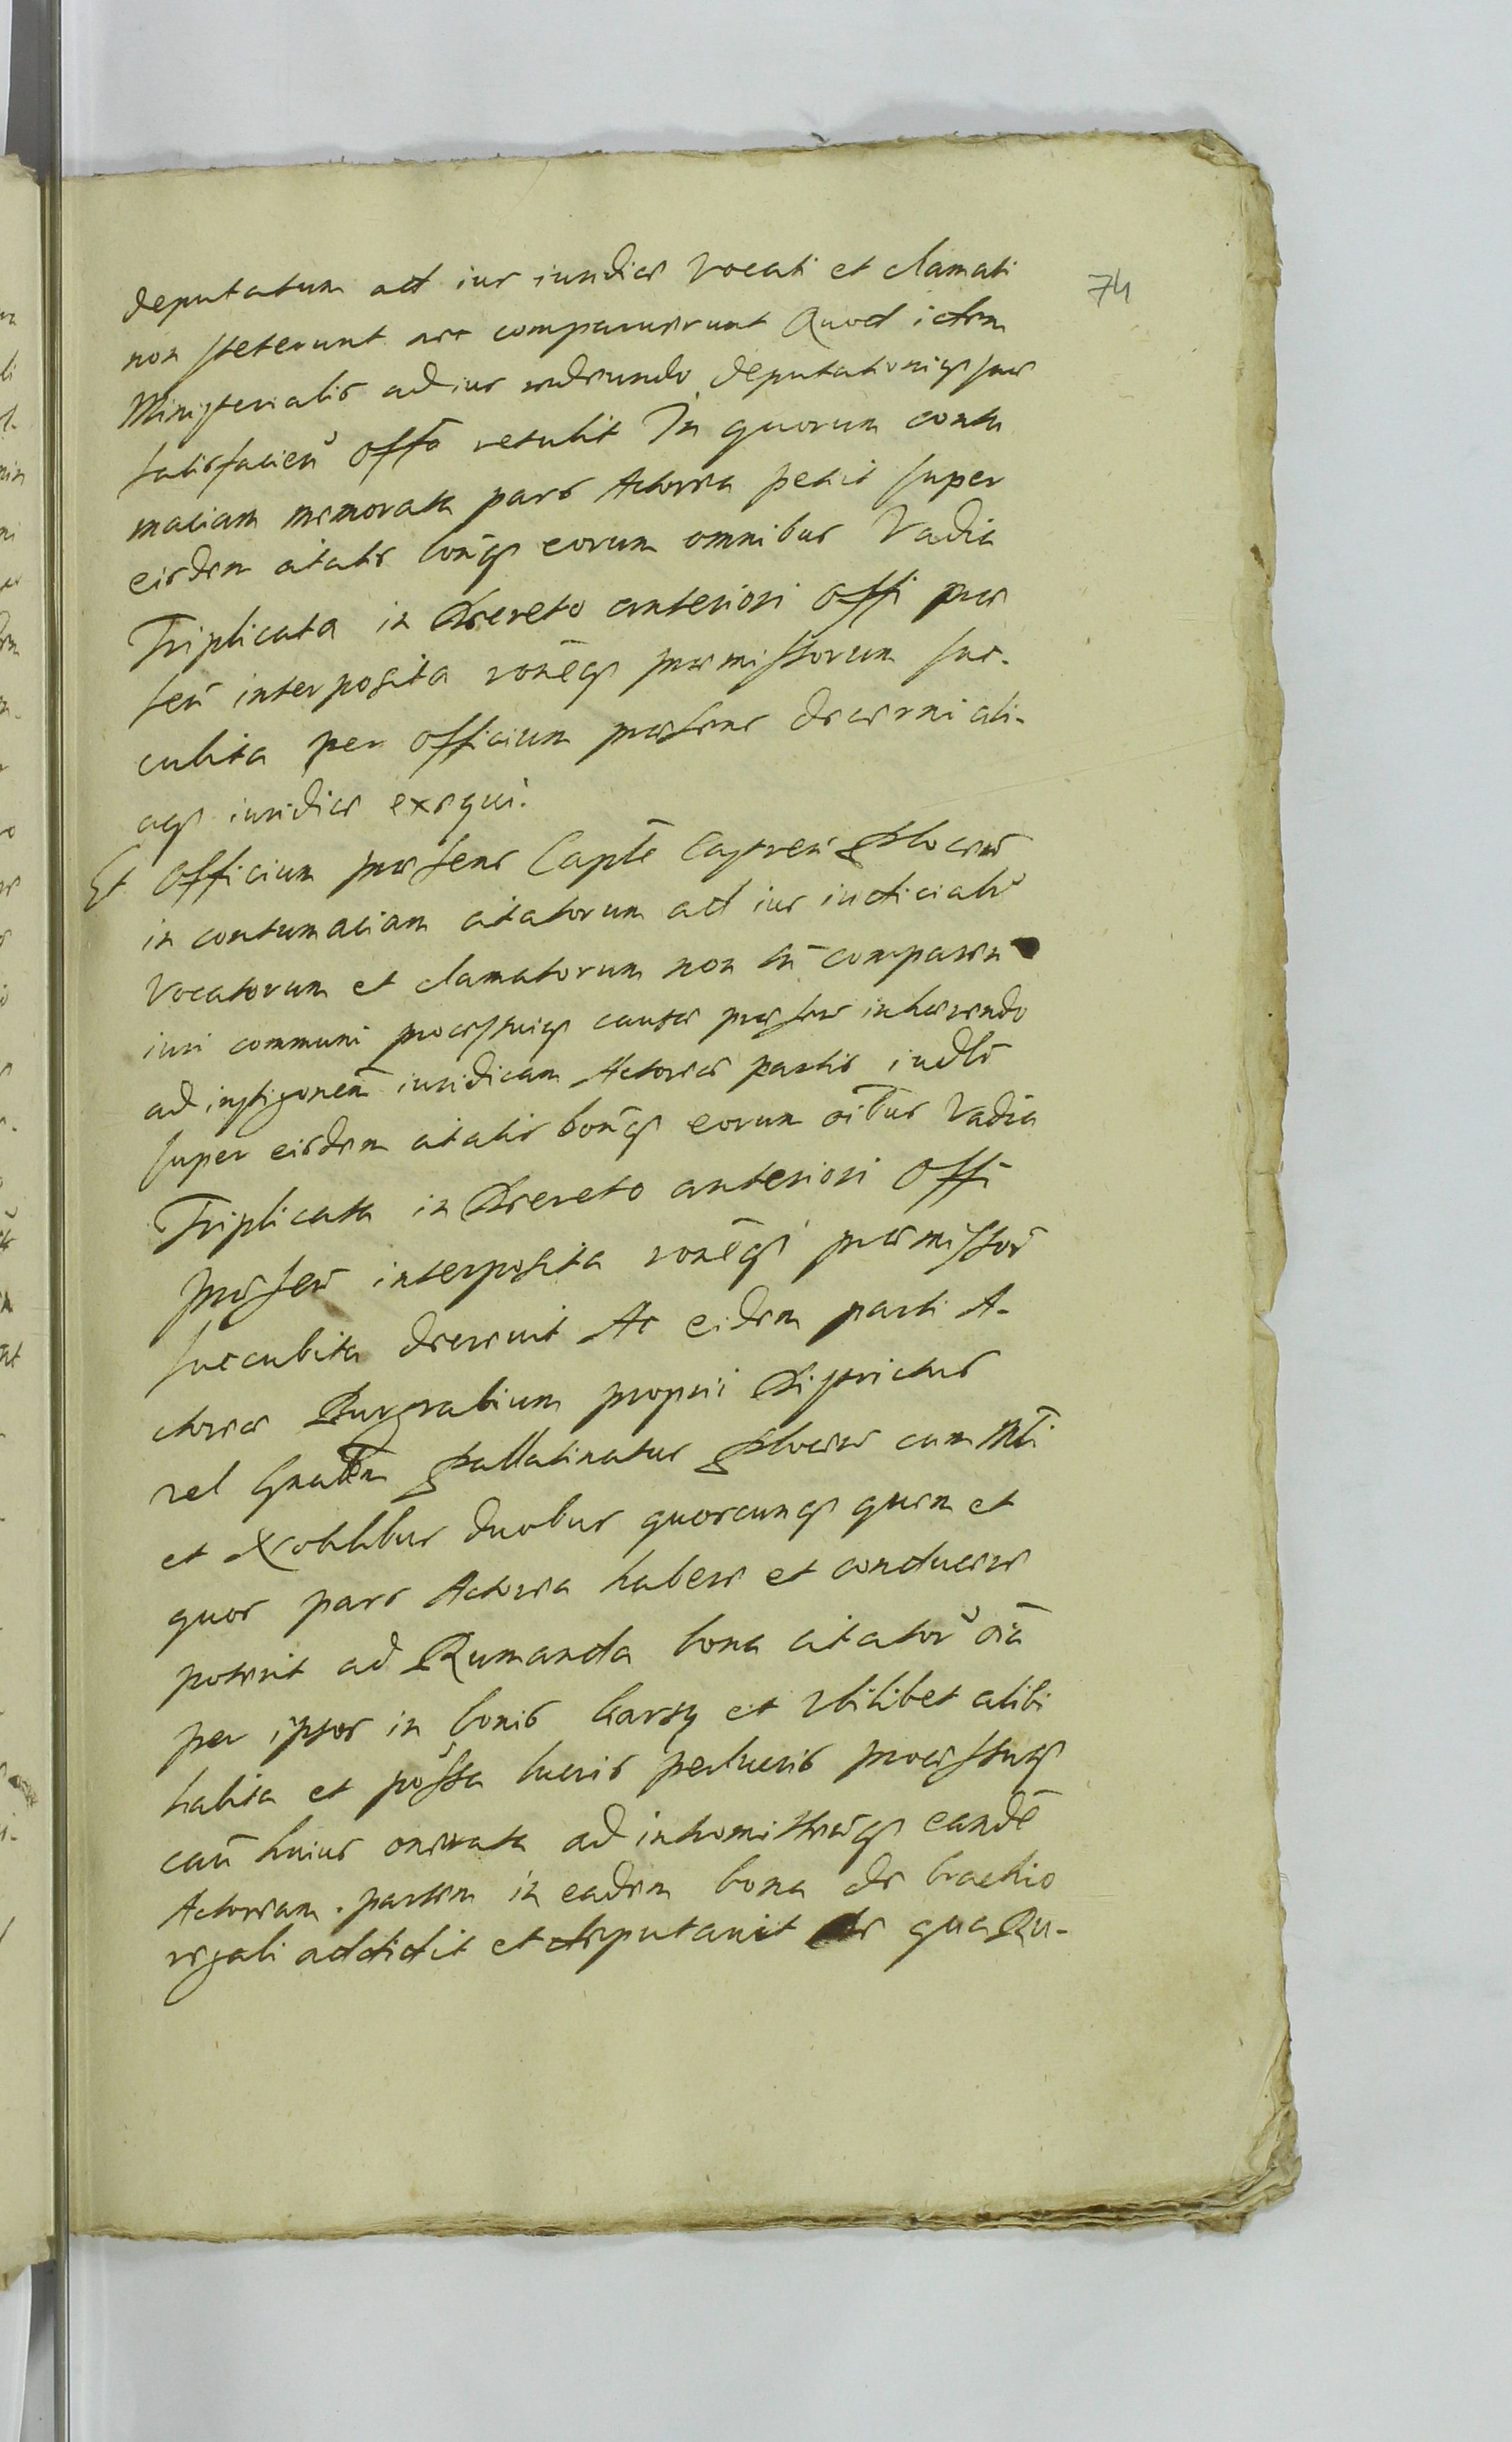 74
deputatum ad iur iuridice vocati et clamati
non steterunt nec comparuerunt Quod idem
Ministerialis ad iur redeundo deputationiq suae
satisfacien̄ Offo retulit In quorum contu
maciam memorata pars Actorea petit super
eisdem citatis bonq eorum omnibus Vadia
Triplicata in Decreto anteriori Offi prae
sen̄ interposita rōneq praemissorum suc-
cubita per Officium praesens decerni ali-
aq iuridice exequi.
Et Officium praesens Capt̄e Castren̄ Plocen̄
in contumaciam citatorum ad iur iudicialr
vocatorum et clamatorum non tn̄ comparen̄
iuri communi processuiq causae praesen̄ inhaerendo
ad instigōnem iuridicam Actoreae partis iudlr
super eisdem citatis bonq eorum oībus Vadia
Triplicata in Decreto anteriori Offi
praesen̄ interposita rōneq praemissor̄
succubita decrevit Ac eidem parti A-
ctoreae Burgrabium proprii Districtus
vel Gnalem Pallatinatus Plocen̄ cum Mli
et Nobilibus duobus quoscunq quem et
quos pars Actorea habere et conducere
poterit ad Rumanda bona citator̄ oīa
per ipsos in bonis et ubilibet alibi
habita et possa lucris perlucris processuq
cau̅ huius onerata ad intromittendq eande̅
Actoream partem in eadem bona de brachio
regali addidit et deputavit de qua Ru-